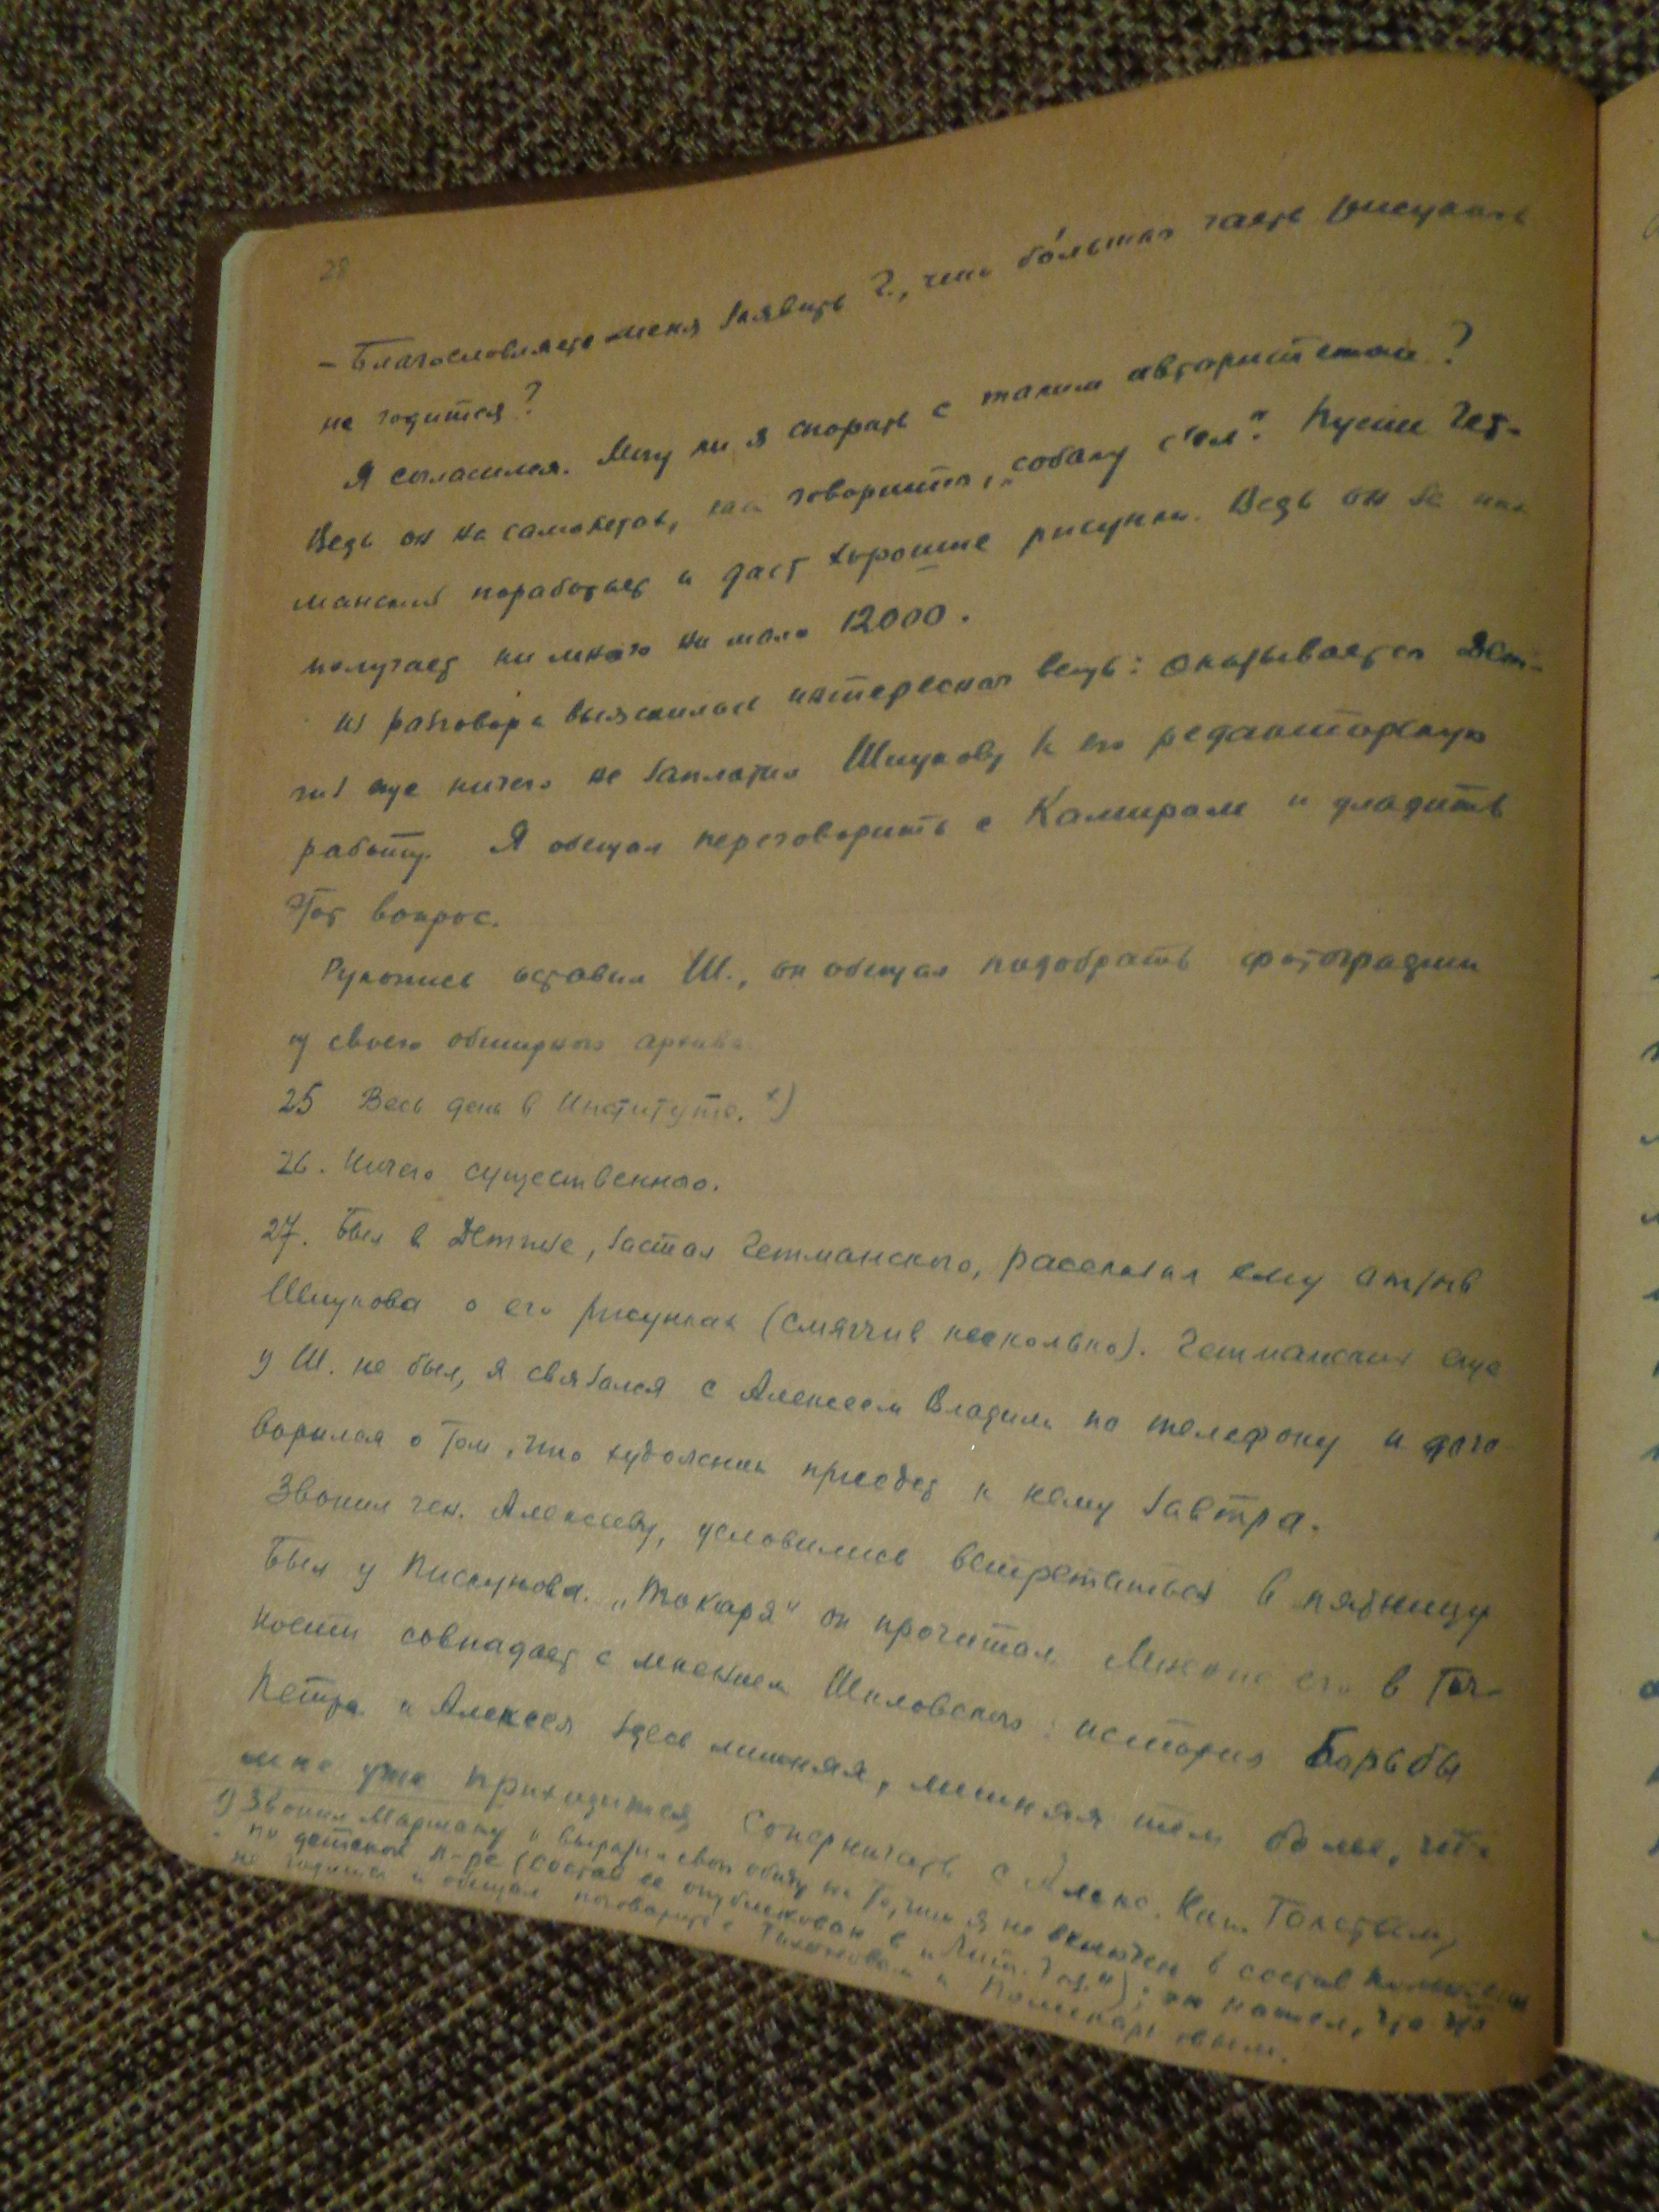 28
– Благословляете меня заявить Г., что бо́льшая часть рисунков
не годится?
Я согласился. Могу ли я спорить с таким авторитетом?
Ведь он на самолетах, как говорится, „собаку с'ел". Пусть Гет-
манский поработает и даст хорошие рисунки. Ведь он за них
получает ни много ни мало 12000.
Из разговора выяснилась интересная вещь: оказывается Дет-
гиз еще ничего не заплатил Шиукову за его редакторскую
работу. Я обещал переговорить с Камиром и уладить
этот вопрос.
Рукопись оставил Ш., он обещал подобрать фотографии
из своего обширного архива.
25 Весь день в Институте. х)
26. Ничего существенного.
27. Был в Детгизе, застал Гетманского, рассказал ему отзыв
Шиукова о его рисунках (смягчив несколько). Гетманский еще
у Ш. не был, я связался с Алексеем Владим. по телефону и дого-
ворился о том, что художник приедет к нему завтра.
Звонил ген. Алексееву, условились встретиться в пятницу
Был у Пискунова. „Токаря" он прочитал. Мнение его в точ-
ности совпадает с мнением Шкловского: история борьбы
Петра и Алексея здесь лишняя, лишняя тем более, что
мне уже приходится соперничать с Алекс. Ник. Толстым,
х) Звонил Маршаку и выразил свою обиду на то, что я не включен в состав комиссии
по детской л-ре (состав ее опубликован в „Лит. Газ."); он нашел, что это
не годится и обещал поговорить с Тихоновым и Поликарповым.